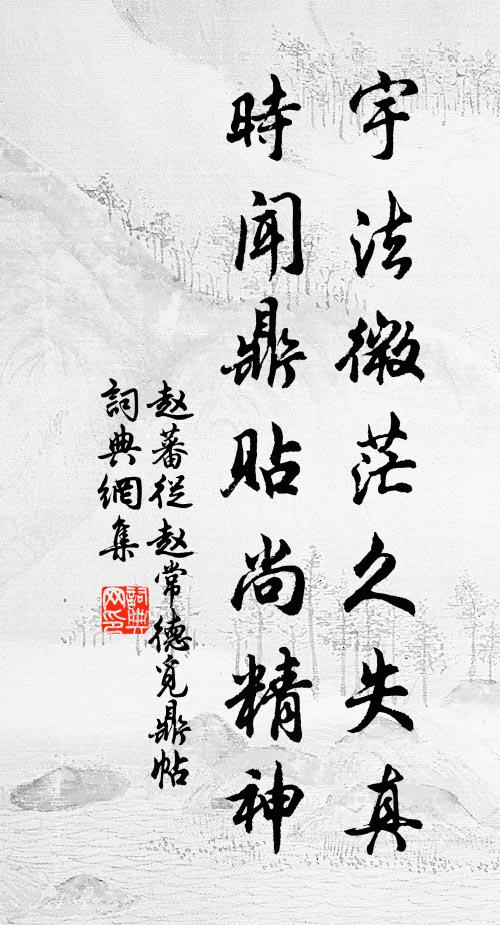 宇法微茫久失真
時聞鼎貼尚精神
赵蕃從赵常德覓鼎帖
詞典網集
詞典網印